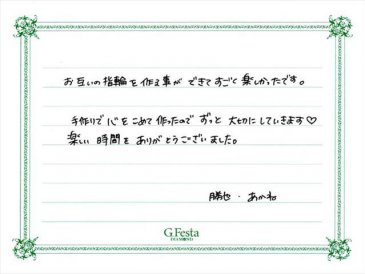 お互いの指輪を作る事ができてすごく楽しかったです。
手作りで心をこめて作ったので ずっと 大切にしていきます♡
楽しい時間をありがとうございました。
勝也・あかね
G.Festa
DIAMOND